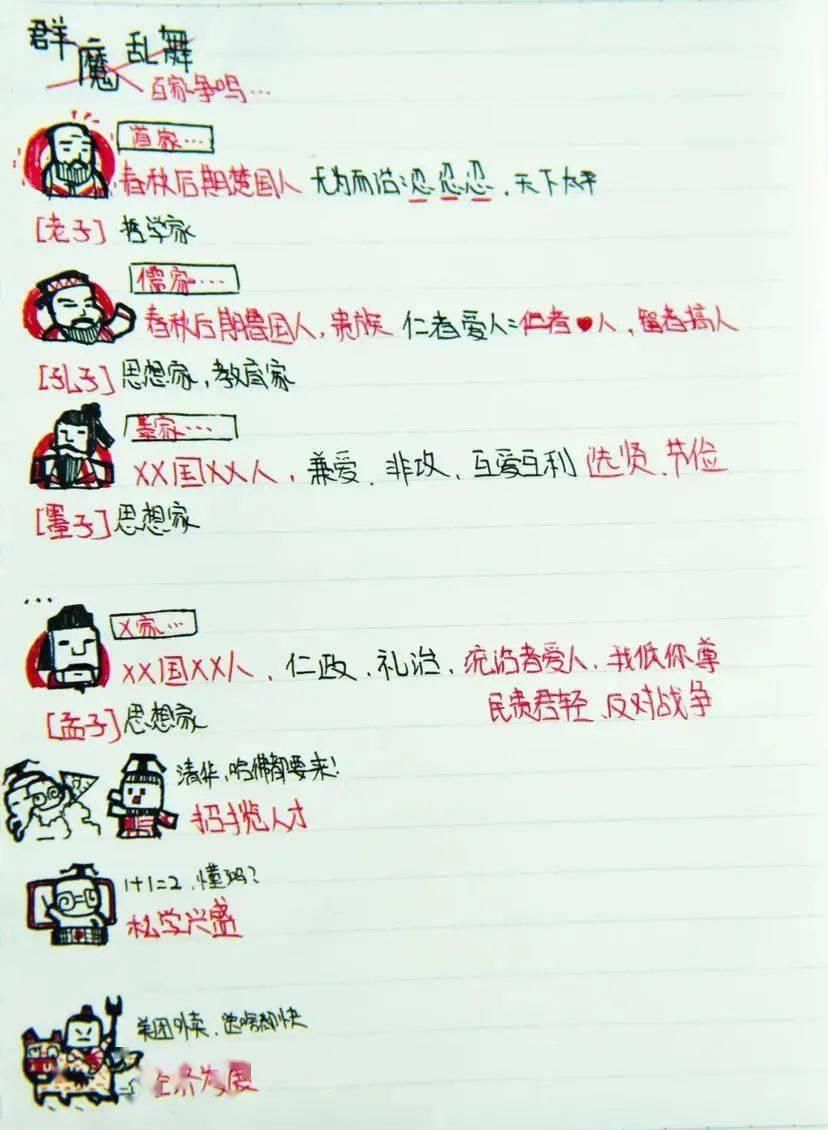 群魔乱舞
百家争鸣…
道家…
春秋后期楚国人 无为而治:忍忍忍、天下太平
[老子] 哲学家
儒家…
春秋后期鲁国人,贵族 仁者爱人:仁者♥人,智者搞人
[孔子] 思想家,教育家
墨家…
XX国XX人,兼爱、非攻,互爱互利 选贤、节俭
[墨子] 思想家
...
X家…
XX国XX人、仁政、礼治,统治者爱人,我低你尊
民贵君轻、反对战争
[孟子] 思想家
清华,哈佛都要来!
招揽人才
1+1=2,懂吗?
私学兴盛
美团外卖,送啥都快
经济发展